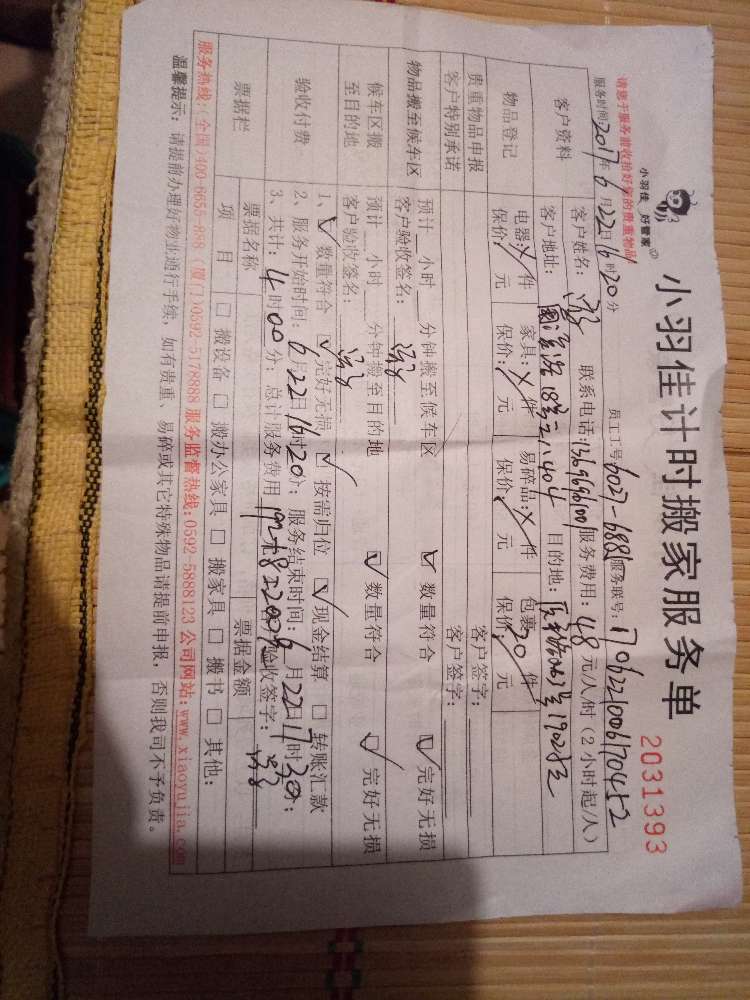 小羽佳 好管家
小羽佳计时搬家服务单
2031393
请您于服务前收拾好您的贵重物品
服务时间:2017年6月22日16时20分 员工工号:6027-6881 服务联号:
客户资料 客户姓名: 联系电话: 服务费用:48元/人/时(2小时起/人)
客户地址: 18号 1404 目的地: 1902
物品登记 电器: 件 家具: 件 易碎品: 件 包裹:20件
保价: 元 保价: 元 保价: 元 保价: 元
贵重物品申报 客户签字:
客户特别承诺 客户签字:
物品搬至候车区 预计 小时 分钟搬至候车区 ☑ 数量符合 ☑ 完好无损
客户验收签名:
候车区搬至目的地 预计 小时 分钟搬至目的地 ☑ 数量符合 ☑ 完好无损
客户验收签名:
验收付费 1、☑ 数量符合 ☑ 完好无损 ☑ 按需归位 ☑ 现金结算 □ 转账汇款
2、服务开始时间:6月22日16时20分; 服务结束时间:6月22日17时30分;
3、共计:4时00分; 总计服务费用 192+8=200元 验收签字:
票据栏 票据名称 票据金额
项目 □ 搬设备 □ 搬办公家具 □ 搬家具 □ 搬书 □ 其他:
服务热线:全国)400-6655-888 (厦门)0592-5178888 服务监督热线:0592-5888123 公司网站:www.xiaoyujia.com
温馨提示:请提前办理好物业通行手续,如有贵重、易碎或其它特殊物品请提前申报,否则我司不予负责。